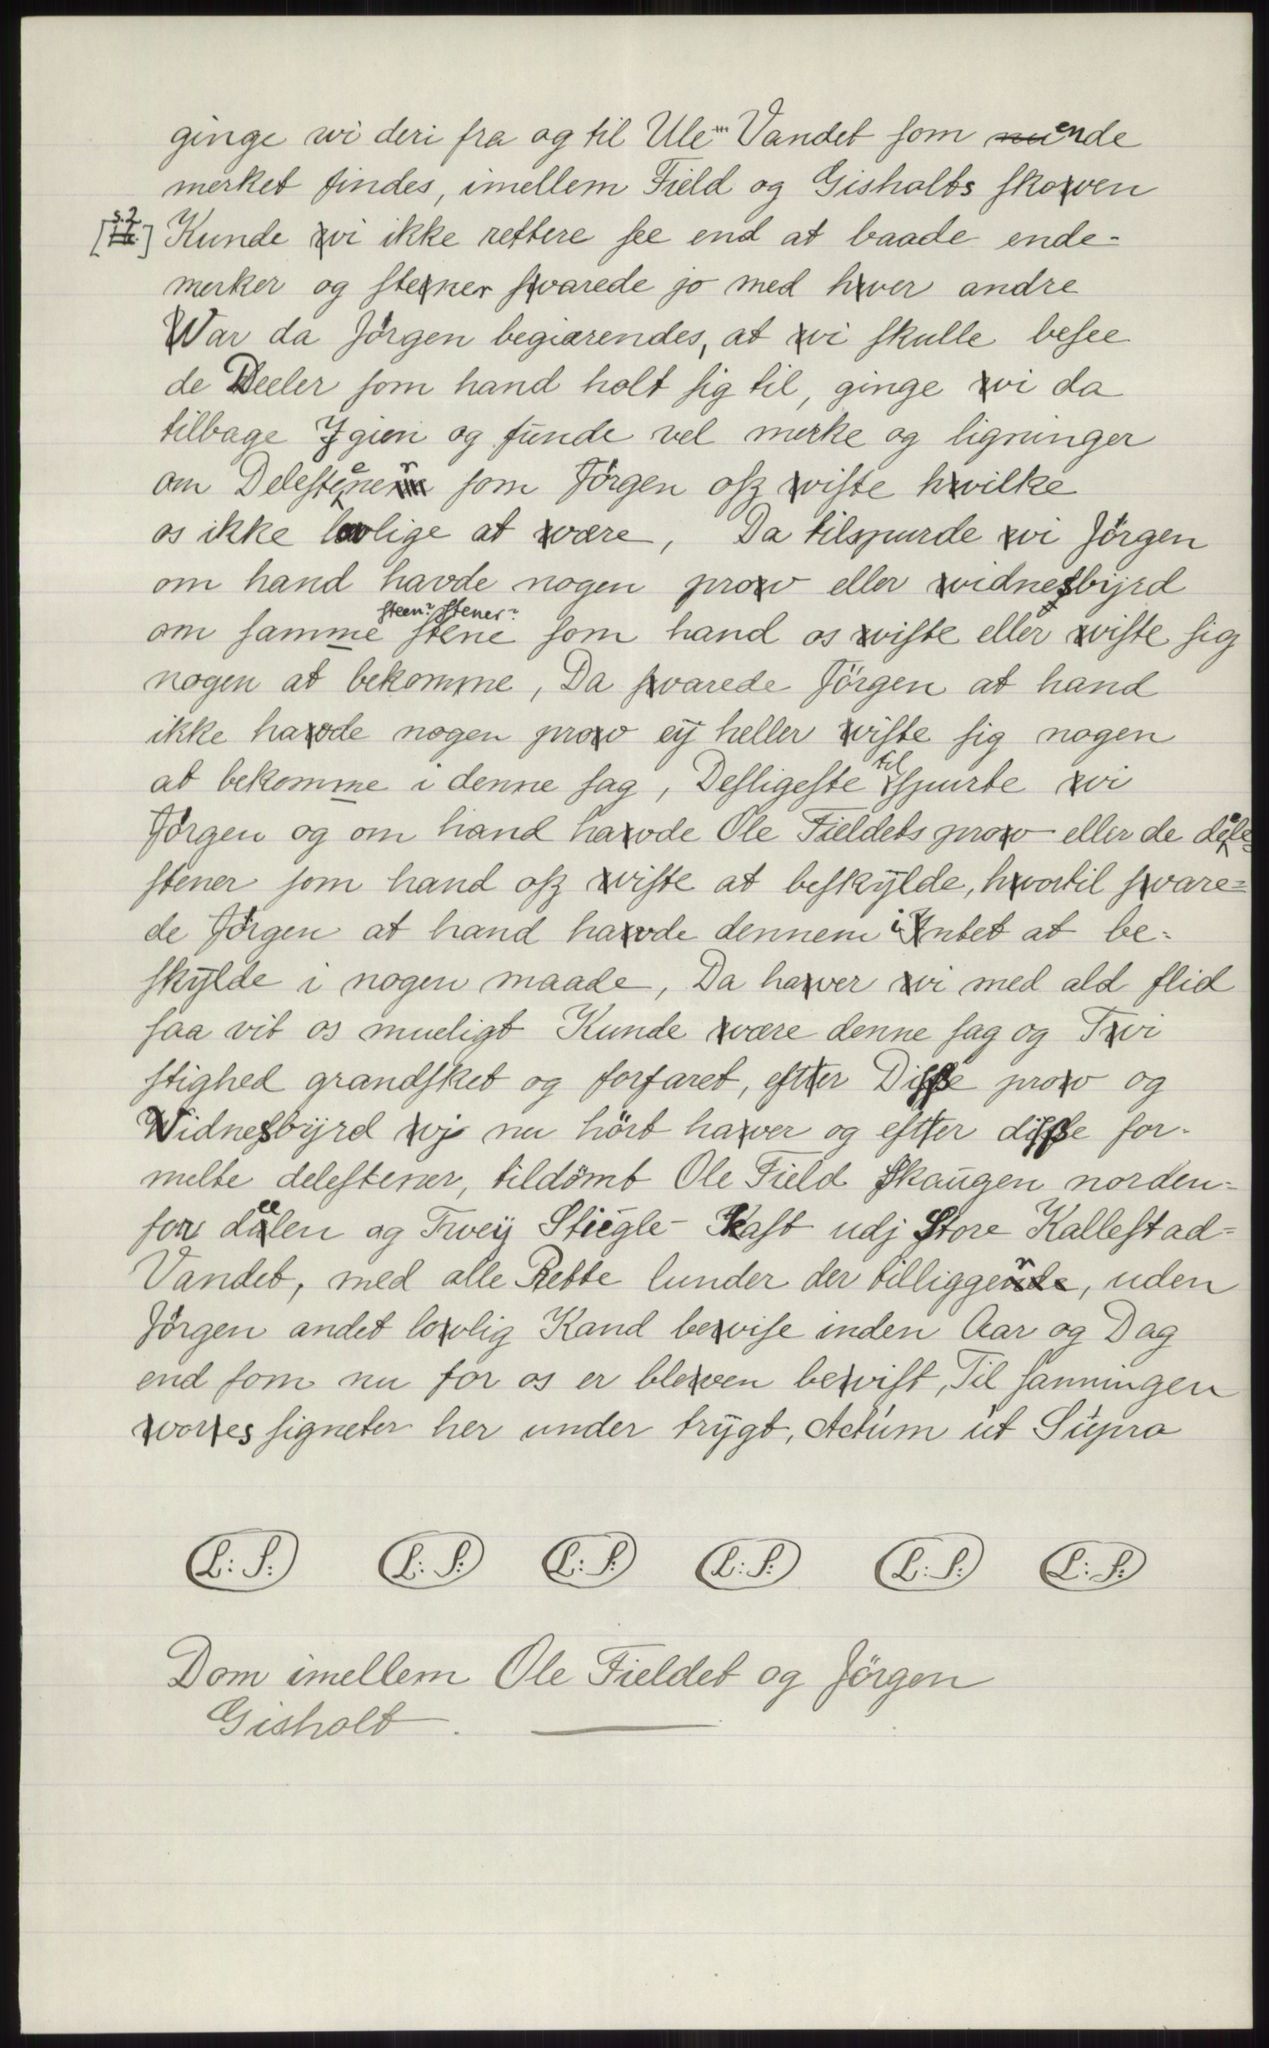 ginge wi deri fra og til Ule''' Vandet som ~~nu~~ ende
merket findes, imellem Field og Gisholts skowen
[s. 2] Kunde wi ikke rettere see end at baade ende-
merker og stener swarede jo med hwer andre
War da Jörgen begiærendes, at wi skulle besee
de Deeler som hand holt sig til, ginge wi da
tilbage Jgien og funde vel merke og ligninger
om Delestener som Jörgen osz wiste hwilke
os ikke lovlige at wære, Da tilspurde wi Jörgen
om hand havde nogen prow eller widnesbyrd
steen? stener?
om samme stene som hand os wiste eller wiste sig
nogen at bekomme, Da swarede Jörgen at hand
ikke hawde nogen prow eÿ heller wiste sig nogen
at bekomme i denne sag, Desligeste tilspurte wi
Jörgen og om hand hawde Ole Fieldets prow eller de dele-
stener som hand osz wiste at beskÿlde, hwortil sware=
de Jörgen at hand hawde dennem intet at be-
skÿlde i nogen maade, Da hawer wi med ald flid
saa vit os mueligt Kunde wære denne sag og Twi
stighed grandsket og forfaret, efter Disse prow og
Widnesbÿrd wj nu hört hawer og efter disse for-
melte delestener, tildömt Ole Field Skaugen norden=
for deelen og Tweÿ Stiegle-Kast udj Store Kallestad=
Vandet, med alle Rette lunder der tilligger, uden
Jörgen andet lowlig Kand bewise inden Aar og Dag
end som nu for os er blewen bewist, Til sanningen
wores signeter her under trÿgt, Actum ut Supra
L: S: L: S: L: S: L: S: L: S: L: S:
Dom imellem Ole Fieldet og Jörgen
Gisholt.